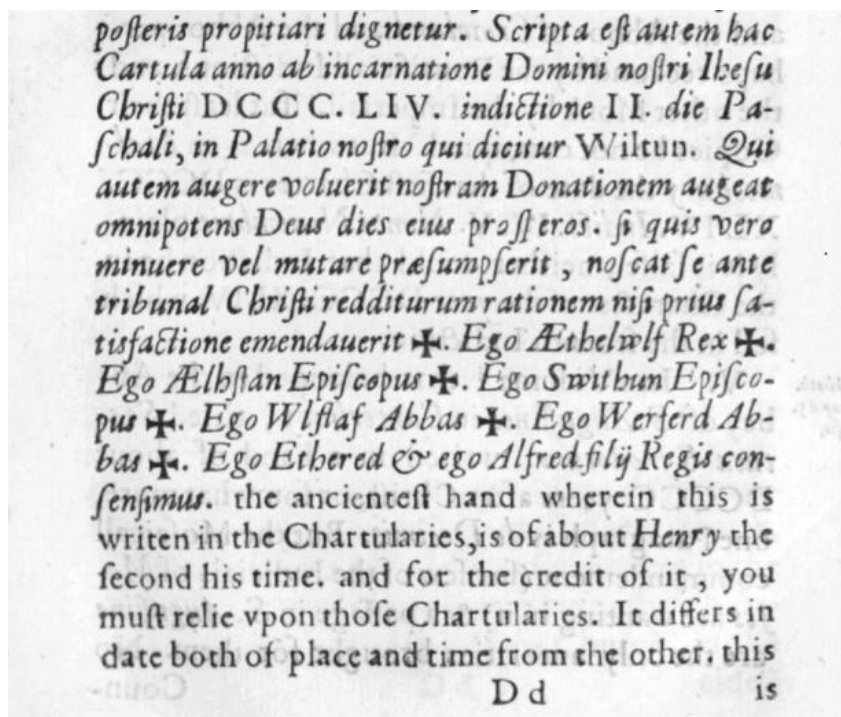 posteris propitiari dignetur. Scripta est autem hac
Cartula anno ab incarnatione Domini nostri Ihesu
Christi DCCC. LIV. indictione II. die Pa-
schali, in Palatio nostro qui dicitur Wiltun. Qui
autem augere voluerit nostram Donationem augeat
omnipotens Deus dies eius prosperos. si quis vero
minuere vel mutare præsumpserit, noscat se ante
tribunal Christi redditurum rationem nisi prius sa-
tisfactione emendauerit ✠. Ego Æthelwlf Rex ✠.
Ego Ælhstan Episcopus ✠. Ego Swithun Episco-
pus ✠. Ego Wlflaf Abbas ✠. Ego Werferd Ab-
bas ✠. Ego Ethered & ego Alfred filij Regis con-
sensimus. the ancientest hand wherein this is
writen in the Chartularies, is of about Henry the
second his time. and for the credit of it, you
must relie vpon those Chartularies. It differs in
date both of place and time from the other. this
D d is